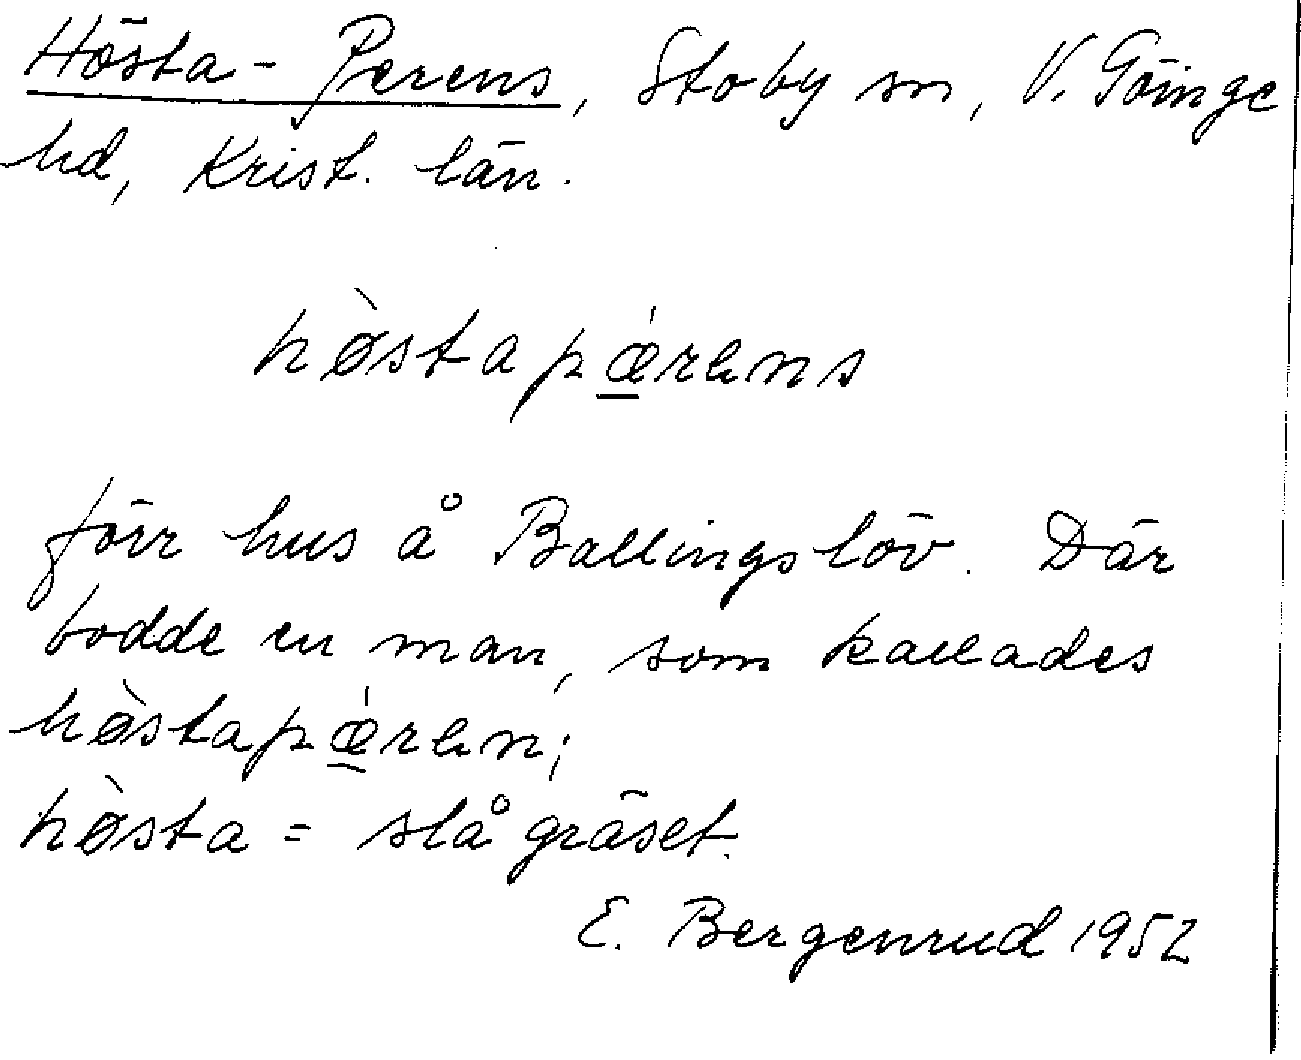 Hösta-Perens, Stoby sn, V. Göinge
hd, Krist. län.
hø̀stapǽ̱rens
förr hus å Ballingslöv. Där
bodde en man, som kallades
hø̀stapǽ̱ren;
hø̀sta = slå gräset.
E. Bergenrud 1952